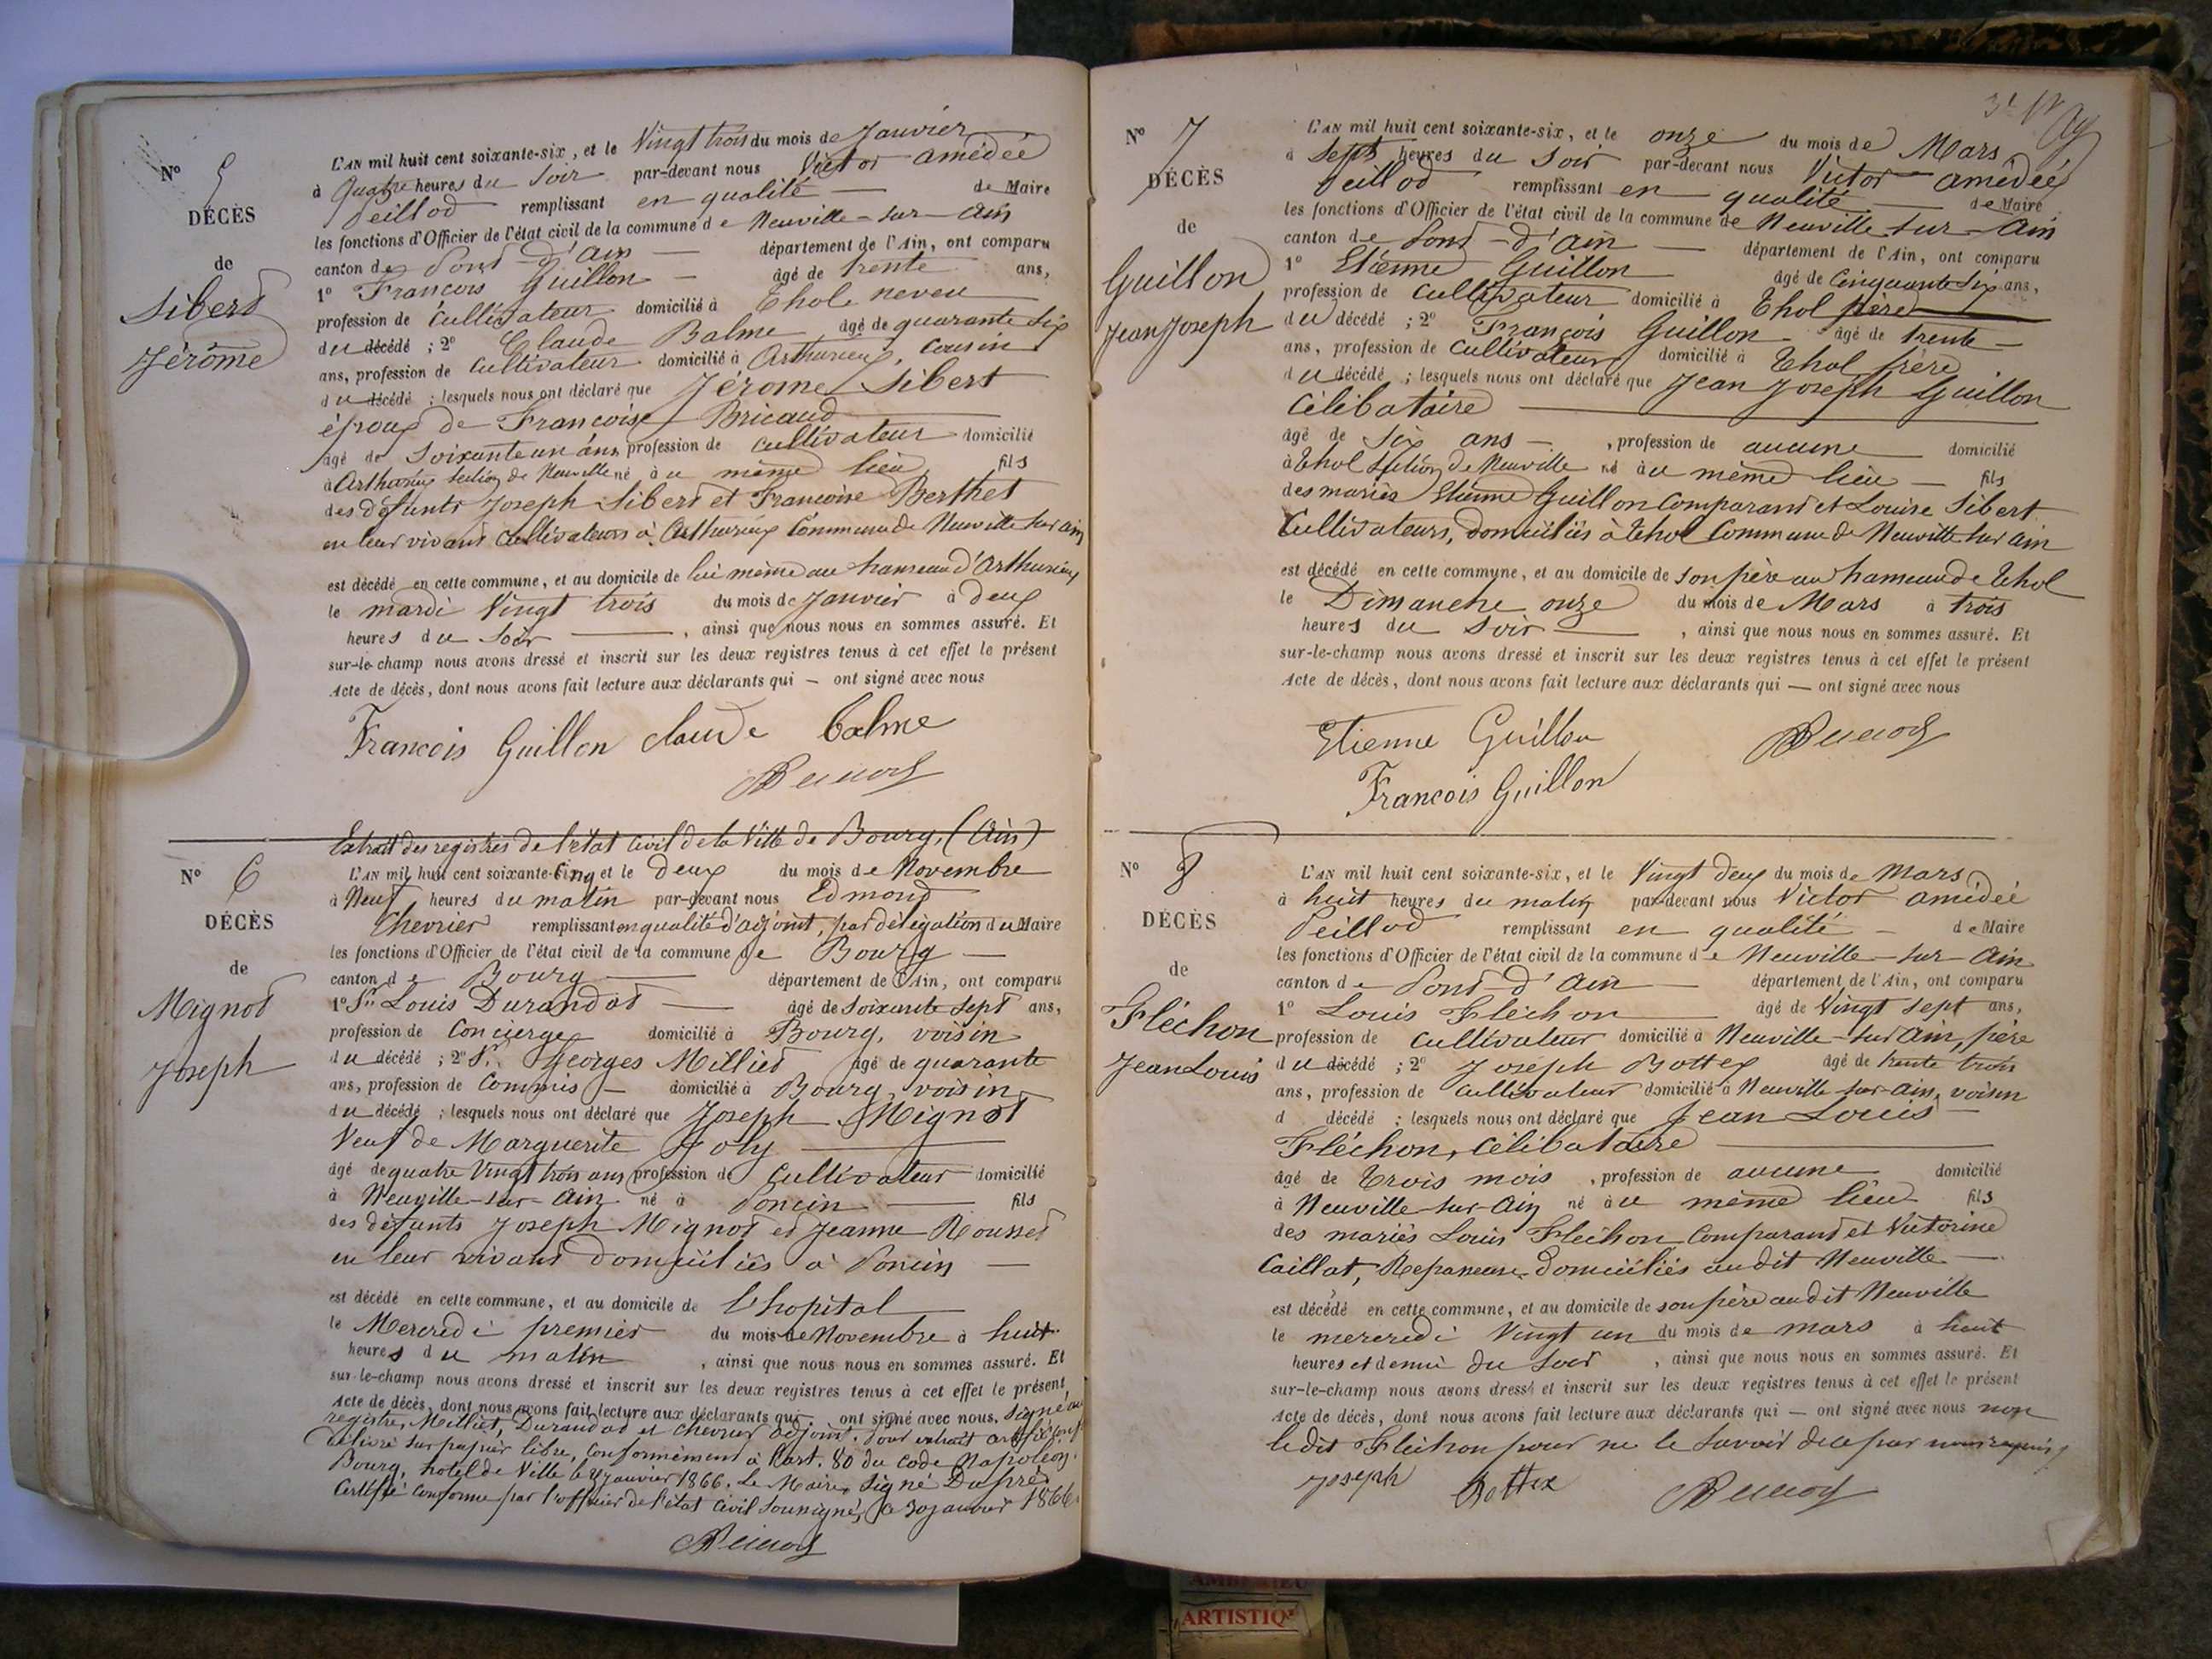 N° 5
DÉCÈS
de
Sibert
Jérôme
L'AN mil huit cent soixante-six, et le Vingt trois du mois de Janvier
à Quatre heures du Soir par-devant nous Victor amédée
Peillod remplissant en qualité — de Maire
les fonctions d'Officier de l'état civil de la commune de Neuville-sur-Ain
canton de Pont-d'Ain — département de l'Ain, ont comparu
1° François Guillon — âgé de trente ans,
profession de Cultivateur domicilié à Thol neveu
du décédé ; 2° Claude Balme âgé de quarante six
ans, profession de Cultivateur domicilié à Arthurieux, Cousin
du décédé ; lesquels nous ont déclaré que Jérome Sibert
époux de Françoise Bricaud
âgé de Soixante un ans, profession de Cultivateur domicilié
à Arthurieux section de Neuville né à u même lieu fils
des défunts Joseph Sibert et Françoise Berthet
en leur vivant Cultivateurs à Arthurieux Commune de Neuville sur ain
est décédé en cette commune, et au domicile de lui même au hameau d'Arthurieux
le mardi Vingt trois du mois de Janvier à deux
heures du Soir —, ainsi que nous nous en sommes assuré. Et
sur-le-champ nous avons dressé et inscrit sur les deux registres tenus à cet effet le présent
Acte de décès, dont nous avons fait lecture aux déclarants qui — ont signé avec nous
François Guillon claude balme
Extrait des registres de l'état Civil de la Ville de Bourg, (Ain)
N° 6
DÉCÈS
de
Mignot
Joseph
L'AN mil huit cent soixante-Cinq et le Deux du mois de Novembre
à Neuf heures du matin par-devant nous Edmond
Chevrier remplissant en qualité d'adjoint, par délégation du Maire
les fonctions d'Officier de l'état civil de la commune de Bourg —
canton de Bourg — département de l'Ain, ont comparu
1° Sr Louis Durandot — âgé de Soixante Sept ans,
profession de Concierge domicilié à Bourg, voisin
du décédé ; 2° Sr Georges Milliet âgé de quarante
ans, profession de Commis — domicilié à Bourg, voisin
du décédé ; lesquels nous ont déclaré que Joseph Mignot
Veuf de Marguerite Joly —
âgé de quatre Vingt trois ans profession de Cultivateur domicilié
à Neuville-sur-Ain né à Poncin — fils
des défunts Joseph Mignot et Jeanne Rousset
en leur vivant domiciliés à Poncin —
est décédé en cette commune, et au domicile de l'hopital
le Mercredi premier du mois de Novembre à huit
heures du matin, ainsi que nous nous en sommes assuré. Et
sur-le-champ nous avons dressé et inscrit sur les deux registres tenus à cet effet le présent
Acte de décès, dont nous avons fait lecture aux déclarants qui ont signé avec nous. Signé au
registre, Milliet, Durandot et Chevrier adjoint. Pour extrait
délivré sur papier libre, conformément à l'art. 80 du Code Napoléon.
Bourg, hotel de Ville le janvier 1866. Le Maire, Signé Dupré
Certifié conforme par l'officier de l'état Civil Soussigné, le 30 janvier 1866.
N° 7
DÉCÈS
de
Guillon
Jean Joseph
L'AN mil huit cent soixante-six, et le onze du mois de Mars
à Sept heures du Soir par-devant nous Victor amédée
Peillod remplissant en qualité — de Maire
les fonctions d'Officier de l'état civil de la commune de Neuville-sur-Ain
canton de Pont-d'Ain — département de l'Ain, ont comparu
1° Etienne Guillon âgé de Cinquante Six ans,
profession de Cultivateur domicilié à Thol père
du décédé ; 2° François Guillon âgé de trente —
ans, profession de Cultivateur domicilié à Thol frère
du décédé ; lesquels nous ont déclaré que Jean Joseph Guillon
Célibataire —
âgé de Six ans —, profession de aucune domicilié
à Thol Section de Neuville né à u même lieu — fils
des mariés Etienne Guillon Comparant et Louise Sibert
Cultivateurs, domiciliés à Thol Commune de Neuville sur ain
est décédé en cette commune, et au domicile de son père au hameau de Thol
le Dimanche onze du mois de Mars à trois
heures du Soir —, ainsi que nous nous en sommes assuré. Et
sur-le-champ nous avons dressé et inscrit sur les deux registres tenus à cet effet le présent
Acte de décès, dont nous avons fait lecture aux déclarants qui — ont signé avec nous
Etienne Guillon
François Guillon
N° 8
DÉCÈS
de
Fléchon
Jean Louis
L'AN mil huit cent soixante-six, et le Vingt deux du mois de Mars
à huit heures du matin par-devant nous Victor amédée
Peillod remplissant en qualité — de Maire
les fonctions d'Officier de l'état civil de la commune de Neuville-sur-Ain
canton de Pont-d'Ain — département de l'Ain, ont comparu
1° Louis Fléchon — âgé de Vingt sept ans,
profession de Cultivateur domicilié à Neuville-sur-Ain, père
du décédé ; 2° Joseph Bottex âgé de trente trois
ans, profession de Cultivateur domicilié à Neuville-sur-ain, voisin
d décédé ; lesquels nous ont déclaré que Jean Louis —
Fléchon, Célibataire —
âgé de Trois mois, profession de aucune domicilié
à Neuville-sur-Ain né à u même lieu fils
des mariés Louis Fléchon Comparant et Victorine
Caillat, Repasseuse domiciliés audit Neuville —
est décédé en cette commune, et au domicile de son père audit Neuville
le mercredi Vingt un du mois de mars à huit
heures et demie du Soir, ainsi que nous nous en sommes assuré. Et
sur-le-champ nous avons dressé et inscrit sur les deux registres tenus à cet effet le présent
Acte de décès, dont nous avons fait lecture aux déclarants qui — ont signé avec nous non
ledit Fléchon pour ne le Savoir de ce par nous requis
Joseph Bottex
ARTISTIQ